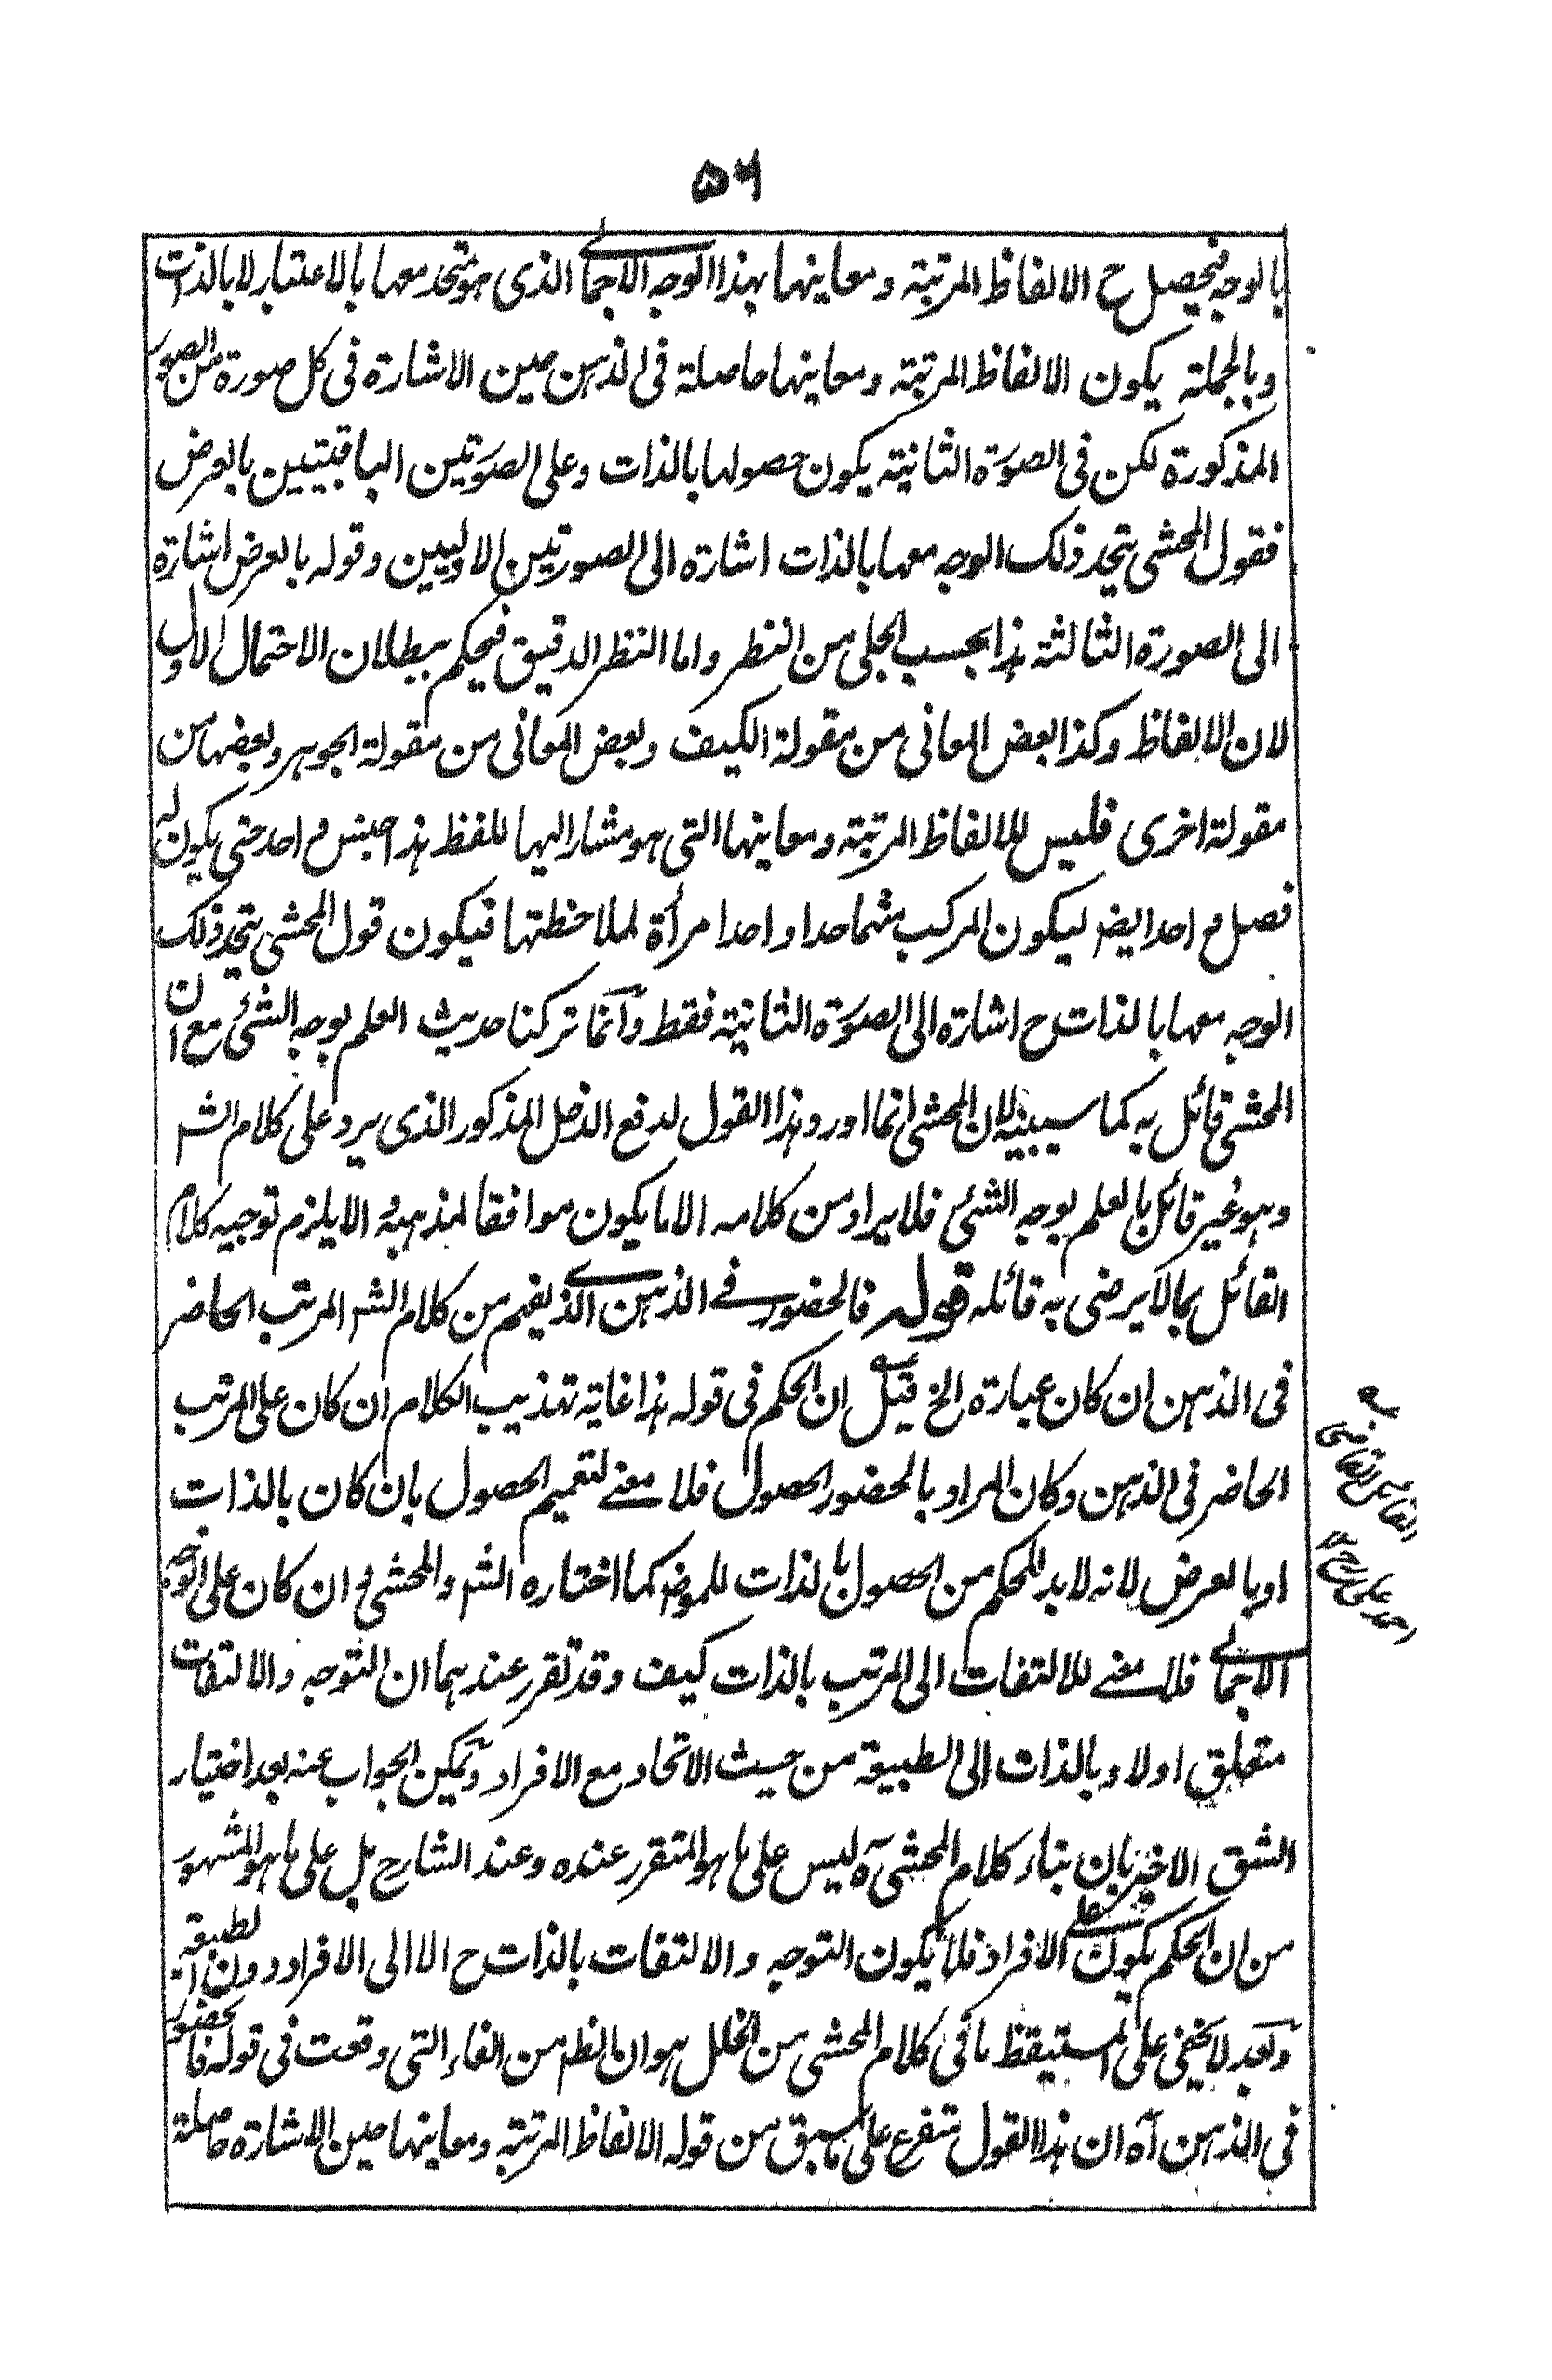 ٥٦
بالوجه فيحصل ح الالفاظ المرتبة ومعاينها بهذا الوجه الاجمالى الذى هو متحد معها بالاعتبار لا بالذات
وبالجملة يكون الالفاظ المرتبة ومعاينها حاصلة فى الذهن حين الاشارة فى كل صورة من الصور
المذكورة لكن فى الصورة الثانية يكون حصولها بالذات وعلى الصورتين الباقيتين بالعرض
فقول المحشى يتحد ذلك الوجه معها بالذات اشارة الى الصورتين الاوليين وقوله بالعرض اشارة
الى الصورة الثالثة هذا بحسب الجلى من النظر واما النظر الدقيق فيحكم ببطلان الاحتمال الاول
لان الالفاظ وكذا بعض المعانى من مقولة الكيف وبعض المعانى من مقولة الجوهر وبعضها من
مقولة اخرى فليس للالفاظ المرتبة ومعاينها التى هو مشار اليها للفظ هذا جنس واحد حتى يكون له
فصل واحد ايضا ليكون المركب منهما حدا واحدا مرأة لملاحظتها فيكون قول المحشى يتحد ذلك
الوجه معها بالذات ح اشارة الى الصورة الثانية فقط وانما تركنا حديث العلم بوجه الشئ مع ان
المحشى قائل به كما سيبينه لان المحشى انما اورد هذا القول لدفع الدخل المذكور الذى يرد على كلام الشر
وهو غير قائل بالعلم بوجه الشئ فلا يراد من كلامه الا ما يكون موافقا لمذهبه والا يلزم توجيه كلام
القائل بما لا يرضى به قائله قوله فالحضور فى الذهن الذى يفهم من كلام الشر المرتب الحاضر
فى الذهن ان كان عبارة الخ قيل ان الحكم فى قوله هذا غاية تهذيب الكلام ان كان على المرتب
الحاضر فى الذهن وكان المراد بالحضور الحصول فلا معنى لتعميم الحصول بان كان بالذات
او بالعرض لانه لا بد للحكم من الحصول بالذات للموضوع كما اختاره الشر والمحشى وان كان على الوجه
الاجمالى فلا معنى للالتفات الى المرتب بالذات كيف وقد تقرر عندهما ان التوجه والالتفات
متعلق اولا وبالذات الى الطبيعة من حيث الاتحاد مع الافراد ويمكن الجواب عنه بعد اختيار
الشق الاخير بان بناء كلام المحشى آه ليس على ما هو المتقرر عنده وعند الشارح بل على ما هو المشهور
من ان الحكم يكون على الافراد فلا يكون التوجه والالتفات بالذات ح الا الى الافراد دون الطبيعة
وبعد لا يخفى على المستيقظ ما فى كلام المحشى من الخلل هو ان الظ من الفاء التى وقعت فى قوله فالحضور
فى الذهن آه ان هذا القول متفرع على ما سبق من قوله الالفاظ المرتبة ومعاينها حين الاشارة حاصلة
القائل القاضى
احمد على